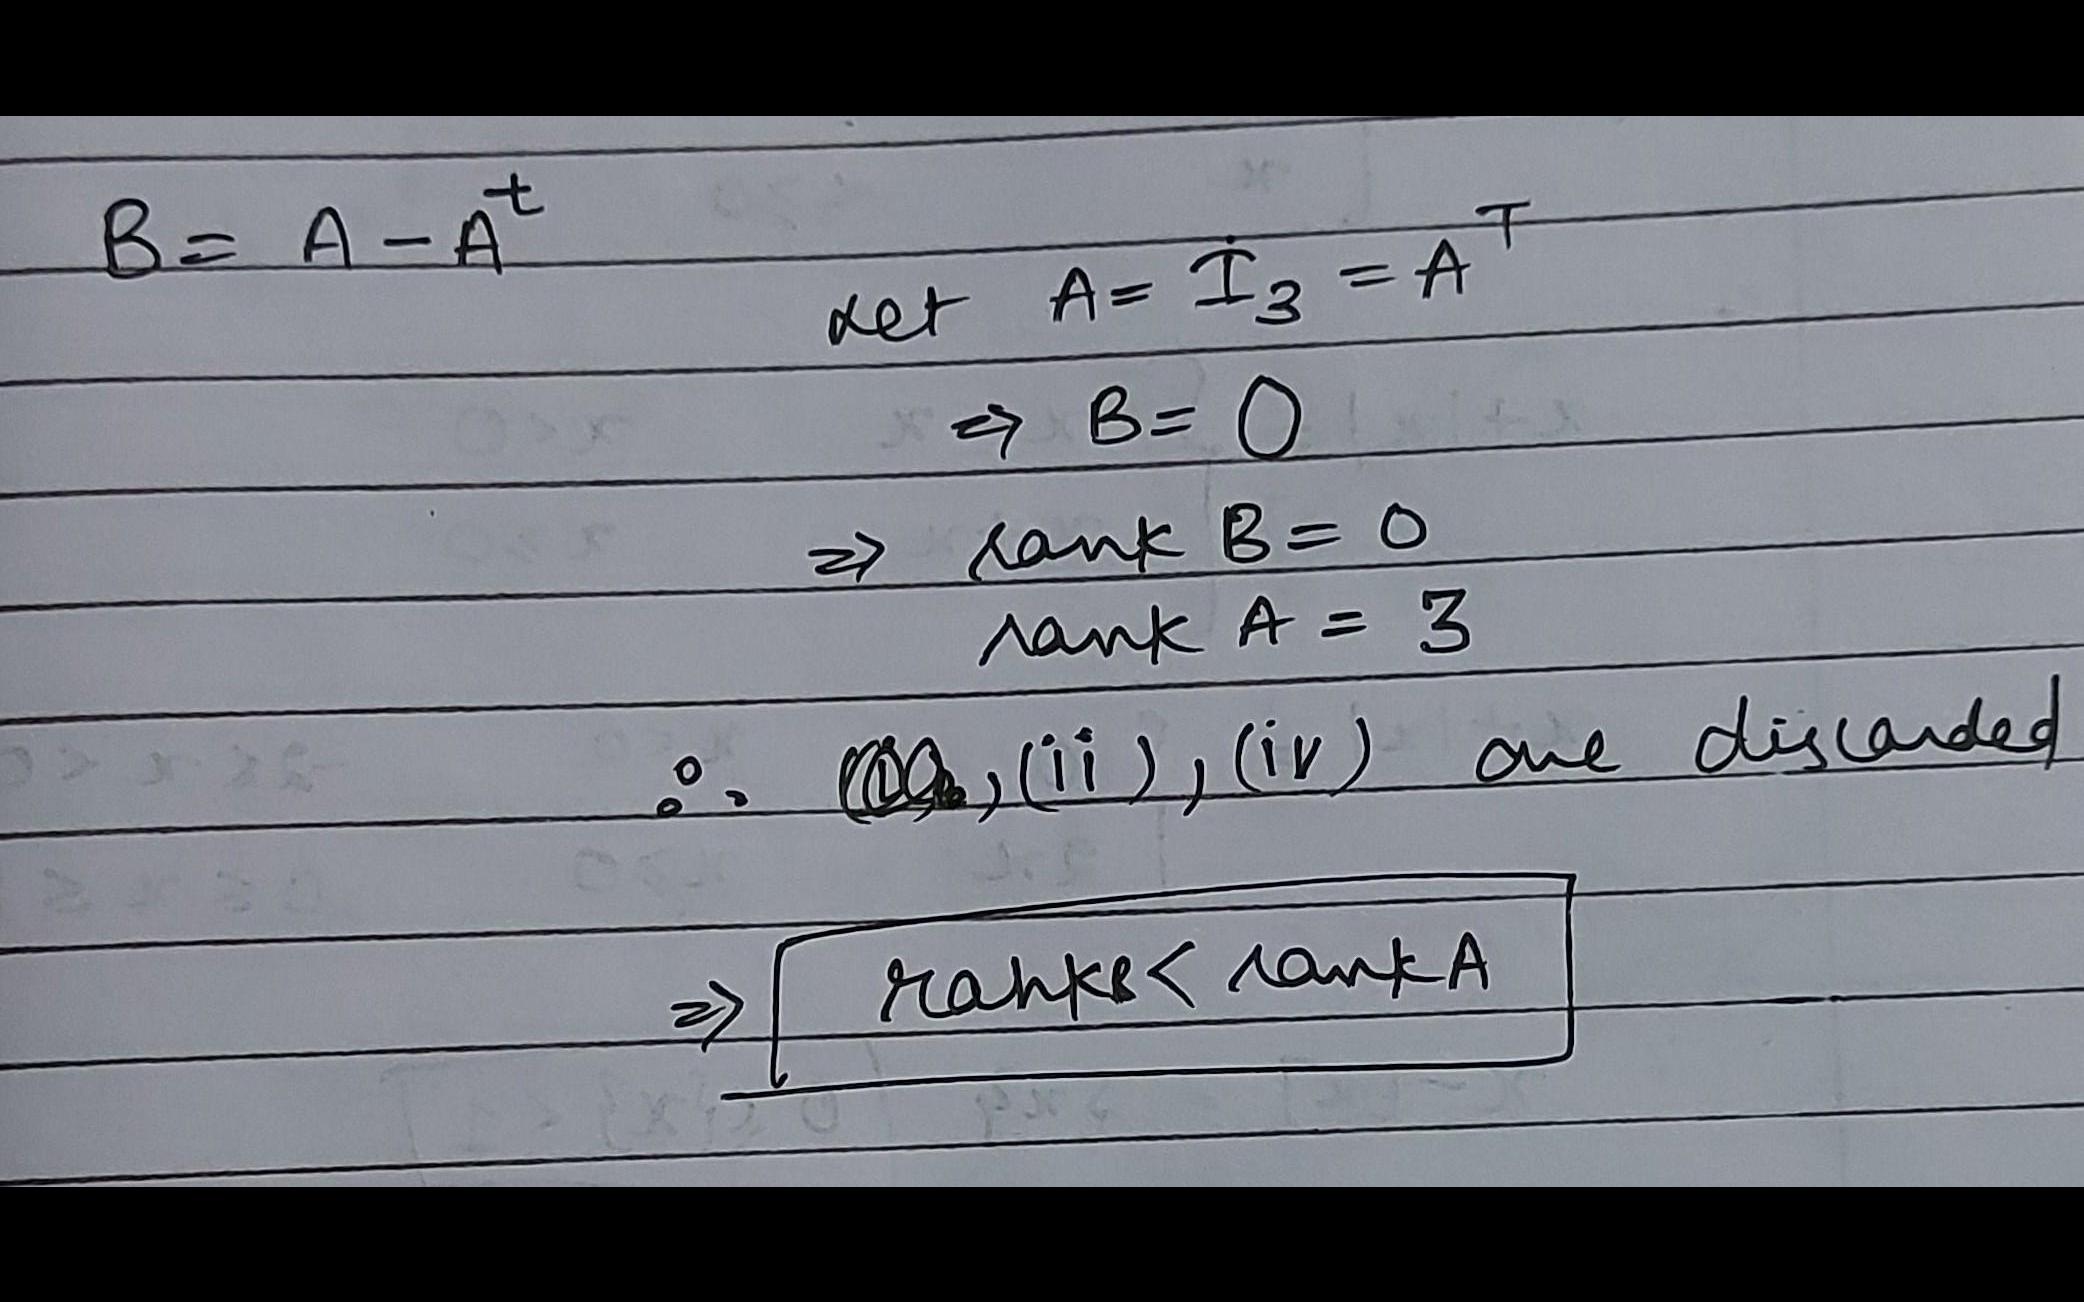 B = A - A^t
Let A = I_3 = A^T
⇒ B = 0
⇒ rank B = 0
rank A = 3
∴ , (ii), (iv) are discarded
⇒ rank B < rank A